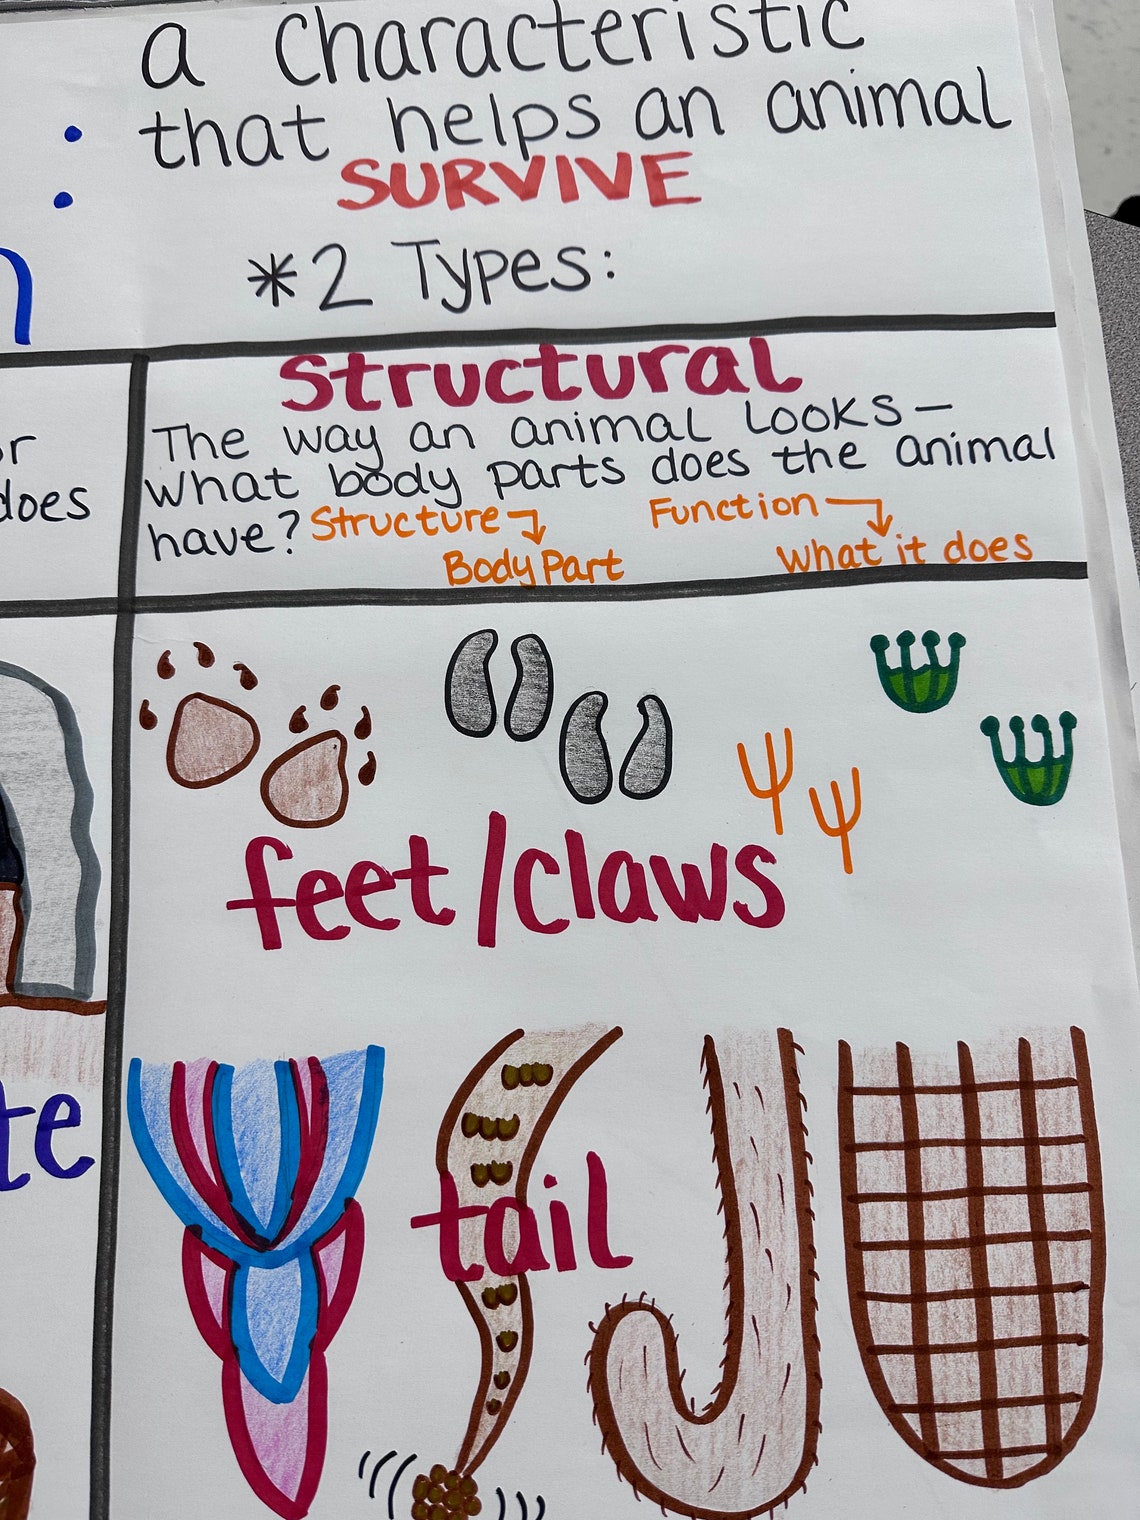 a characteristic
that helps an animal
SURVIVE
*2 Types:
Structural
The way an animal looks—
What body parts does the animal
have? Structure → Function →
Body Part What it does
does
feet/claws
tail